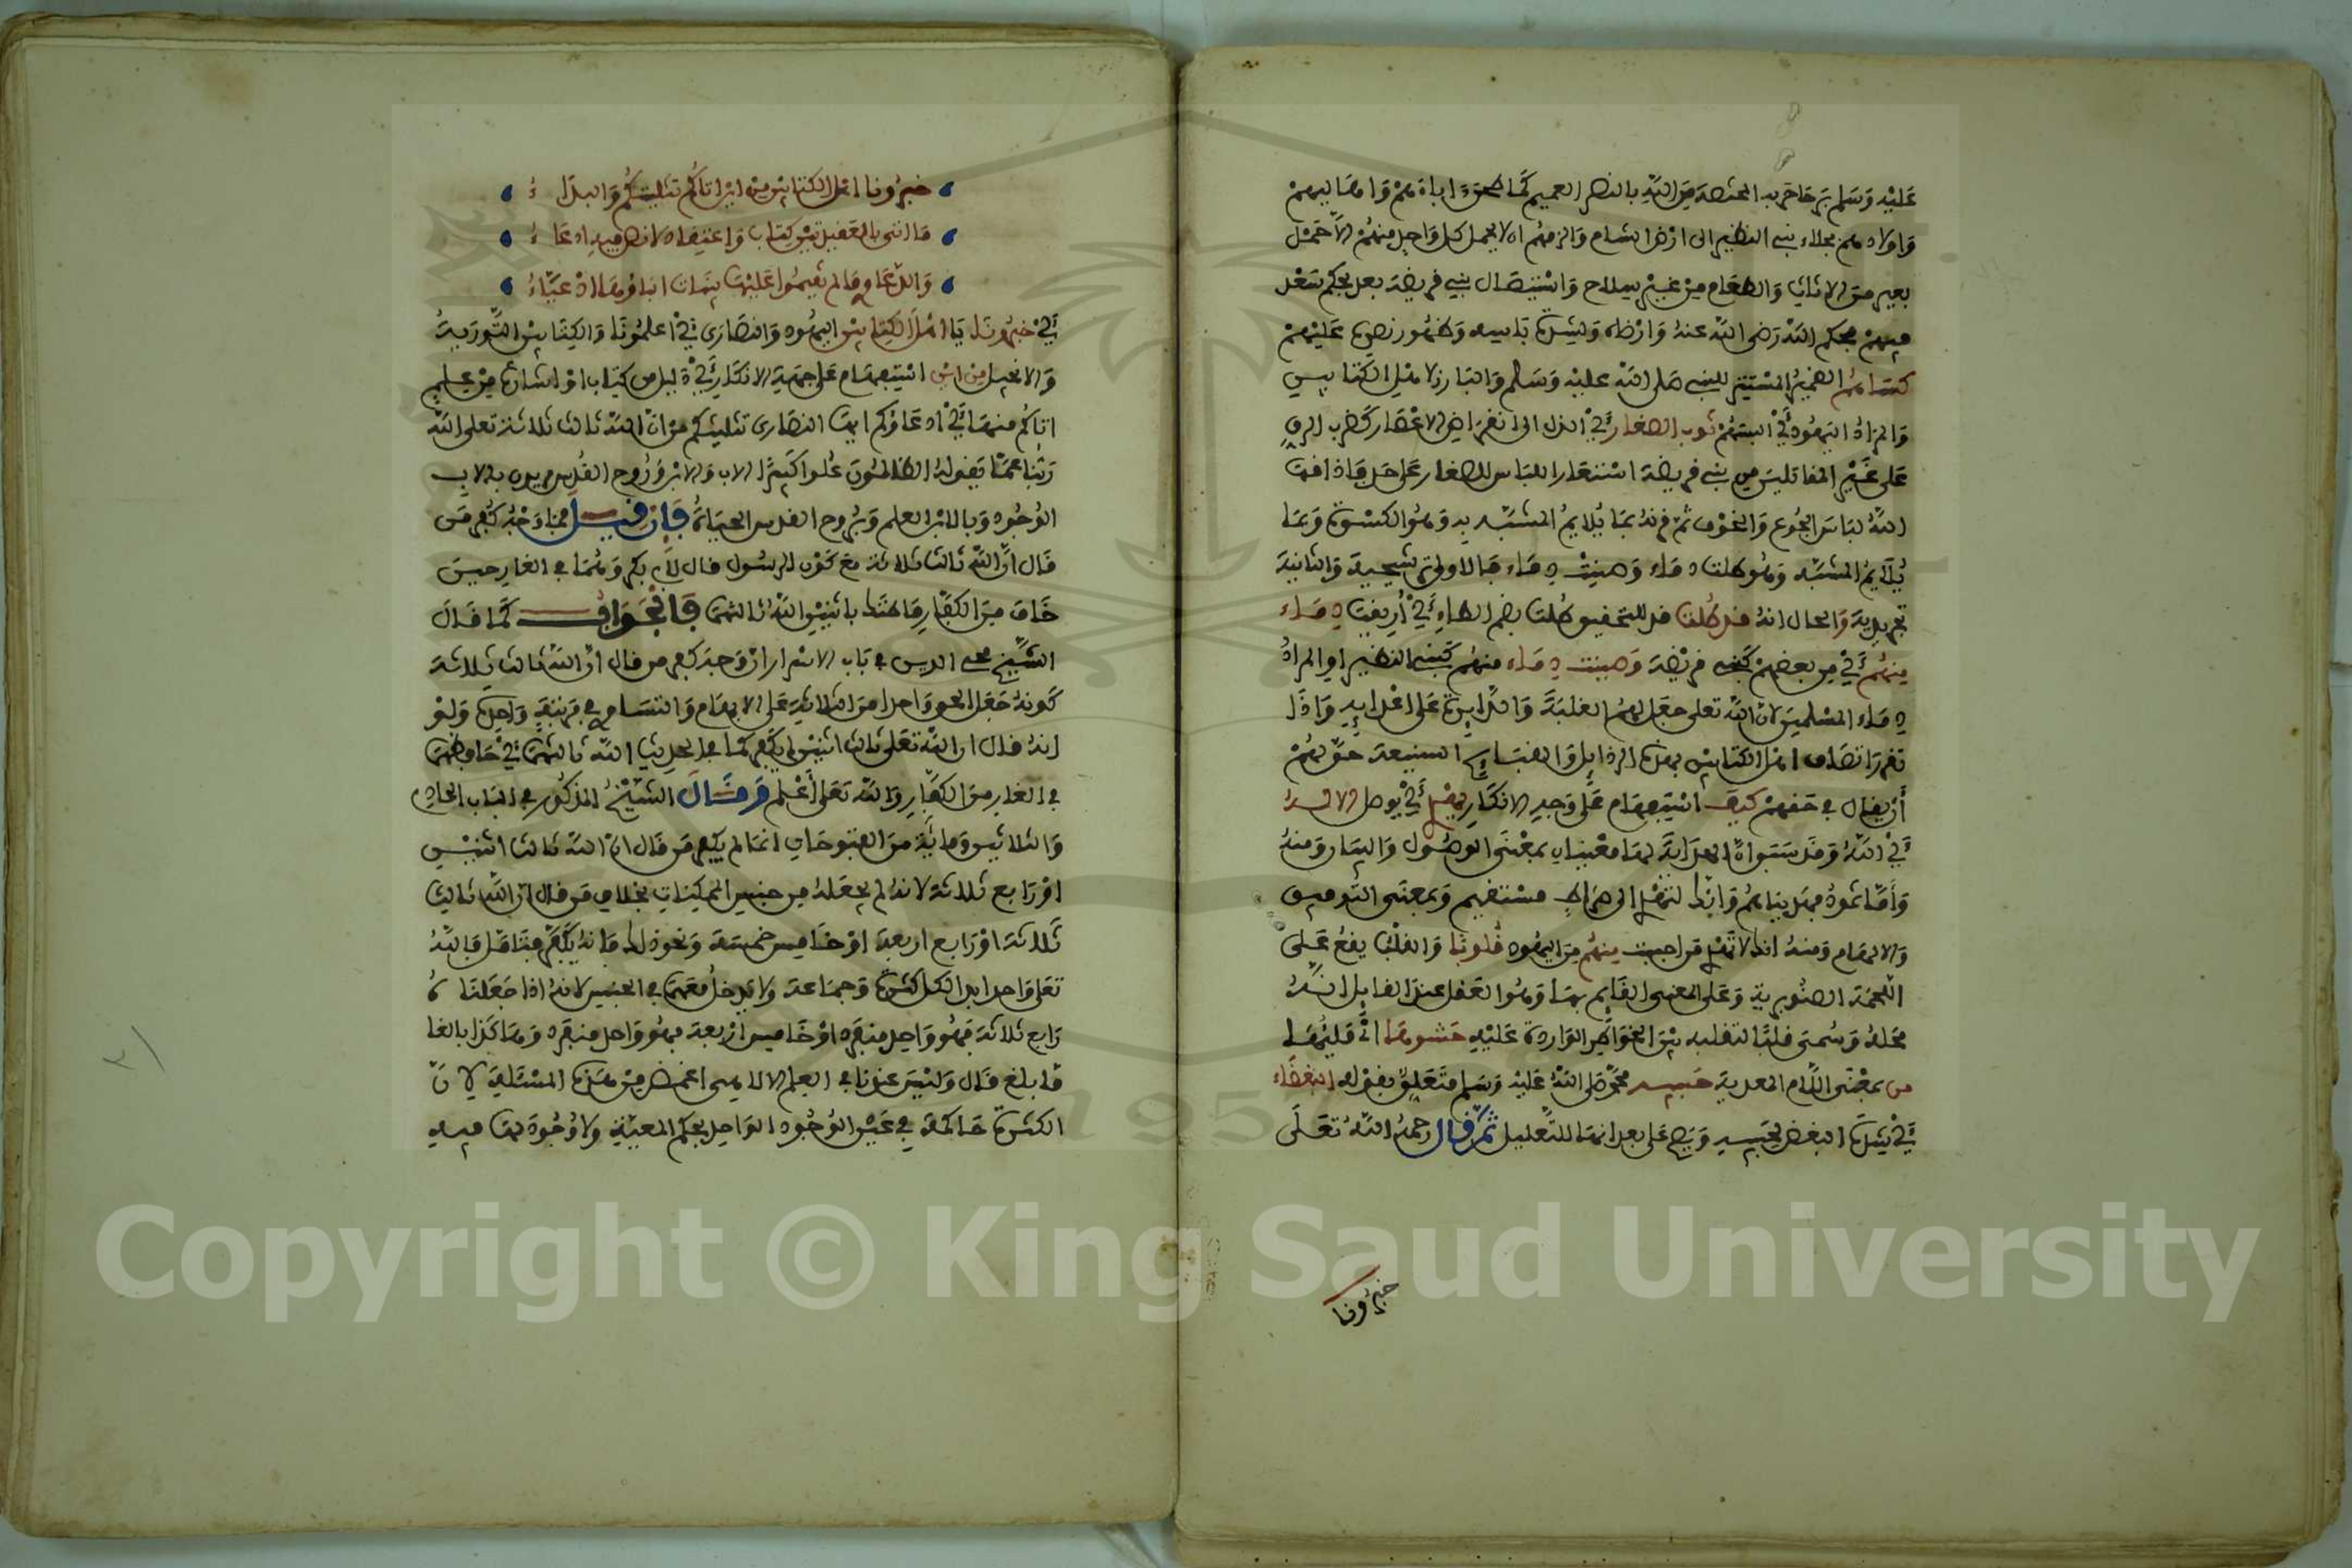 عَلَيْه وَسَلم
وَاولادهم بجلاء بني النظير الى ارْض الشام وَالزمهُم ان لا يحمل كل وَاحِد مِنهُمْ الاّ حَمْل
بعير من الاثاث وَالطعَام مِنْ غَيْر سِلاح وَاسْتِيصَال بني قريضة بعد بحكم سَعْد
فيهمْ بحكم اللّه رَضى اللّه عنهُ وَارْضاه
كسَاهمُ الضميرُ المسْتتِر للنبي صَلى اللّه عليْه وَسَلم وَالبَارز لاهْل الكتَابيْن
وَالمرَادُ اليَهُود أيْ البسَهُمْ ثوب الصغار أيْ الذل الى انقرَاض الاعْصَار كضرب الرق
عَلى غَيْر المقاتلينَ من بني قريضة اسْتعَار اللبَاس للصغار عَلى حَد فأذاقهَا
اللّهُ لبَاسَ الجُوع وَالخوْف ثمّ قرنهُ بمَا يُلايمُ المشبّه به وَهُوَ الكسْوة وَبمَا
يُلايمُ المشبّه وَهُو طلت دمَاء وَصينتْ دِمَاء فالاولى ترشيحية وَالثانية
تجريدية وَالحال انهُ قد طُلت قد للتحقيق طلت بضم الطاءِ أيْ أُريقت دِمَاء
مِنهُمْ أيْ مِن بعضهمْ كبَني قريْضة وَصينت دِمَاء منهُم كبَني النظير او المرادُ
دِمَاء المسْلمينَ لانّ اللّه تعلى جعَل لهمُ الغلبَة وَالدايرة عَلى اعْدايه وَاذا
تقرر اتصَاف اهْل الكتَابيْن بهذه الرذايل وَالقبَايح الشنيعة حَق لهُمْ
أنْ يقال في حَقهمْ كيْف اسْتِفهَام عَلى وَجه الانكَار يهْدِي أيْ يُوصل الاله
أيْ اللّهُ وَقد سَبَق انّ الهدَاية لهَا معْنيَان بمعْنَى الوصُول وَالبيَان وَمنهُ
وَأمّا ثمُودُ فهَديْناهُمْ وَانكَ لتَهْدِي الى صِرَاطٍ مسْتقيم وَبمعْنى التوفيق
وَالالهَام وَمنهُ انكَ لا تَهْدِي مَن احببت مِنهُمْ مِن اليهُود قُلوبًا وَالقلْبُ يقعُ عَلى
اللّحمَة الصّنُوبرية وَعَلى المعْنى القَايم بهَا وَهُو العَقل عند القايل انّهُ
محَلهُ وَسُمىَ قلبًا لتقلبه بيْن الخوَاطِر الوَاردة عَليْهِ حَشوهَا أيْ مَليُهَا
من بمعْنَى اللّام المعدية حَبيبه محمّد صَلى اللّهُ عَليْه وَسَلم متعَلِق بقوْله البَغضَاء
أيْ شدة البغض لحَبيبه وَيصح عَلى بعد انهَا للتّعليل ثمّ قال رَحمهُ اللّهُ تعَلى
خبرُونا
خبرُونا اهْل الكتَابيْن مِنْ ايْن اتاكُمْ تثليثُكُمْ وَالبدَاءُ
مَا اتى بالعَقيدتيْن كِتَاب وَاعتِقاد لا نصّ فيه ادعَاءُ
وَالدّعَاوي مَا لم تقيمُوا عَليْها بيّنَات ابنَاؤهَا ادْعيَاءُ
أيْ خبّرُونا يَا اهْلَ الكِتَابيْن اليهُود وَالنصَارَى أيْ اعلمُونَا وَالكِتَابيْن التّوريةُ
وَالانجيل مِن ايْن اسْتِفهَام عَلى جهَة الانكَار أيْ دَليل من كِتَاب اوْ اشارة مِنْ عِلم
اتاكُمْ منهمَا أيْ ادعَاؤكم ايها النصَارى تثليثكم من انّ اللّه ثالث ثلاثة تعلى اللّه
رَبُّنا عمّا يَقولهُ الظالمُون عُلوا كَبيرًا الاب وَالابْن وَرُوح القدس يريدون بالاب
الوُجُود وَبالابْن العلم وَبرُوح القدس الحيَاة فَإنْ قيـــل فمَا وَجْهُ كُفر مَن
قَال انّ اللّه ثالث ثلاثة مع قوْل الرسُول قال لأبي بكر وَهُمَا في الغار حين
خَاف مِن الكفّار مَا ظنك باثنيْن اللّهُ ثالثهمَا فَالْجَوَابُ كَمَا قَال
الشّيْخ محي الدين في بَاب الاسْرار انْ وَجهَ كفر من قال انّ اللّه ثالث ثلاثة
كَونهُ جَعَل الحق وَاحدا مِن الثلاثة عَلى الابهَام وَالتسَاوي في مَرْتبَةٍ وَاحِدَة وَلوْ
انهُ قال ان اللّه تعَلى ثالث اثنيْن لم يَكْفر كما في الحديث اللّه ثالثهمَا أيْ حَافظهمَا
في الغار مِن الكفّار وَاللّه تعَلى أعْلم قَدْ قَالَ الشّيْخُ المذكُور في البَاب الحَادي
وَالثلاثين وَمائة مِن الفتوحَات انمَا لم يَكْفر مَن قَال انّ اللّه ثالث اثنيْن
اوْ رَابع ثلاثة لانهُ لم يجعَلهُ مِن جنس الممكنَات بخلاف مَن قال انّ اللّه ثالث
ثلاثة اوْ رَابع اربعة اوْ خَامِس خمسَة وَنحوَ ذلك فَانهُ يَكْفر فتَأمّل فاللّهُ
تعَلى وَاحِد ابدا لكل كثرة وَجمَاعة وَلا يدخلُ مَعَهمَا في الجنس لانهُ اذا جَعَلنَاهُ
رَابع ثلاثة فهُوَ وَاحِد منفرد اوْ خَامس ارْبعة فهُو وَاحِد منفرد وَهَاكذا بالغا
مَا بلغ قَال وَليْسَ عندنا في العِلم الالاهي اغمض مِنْ هذه المسْئلةِ لانّ
الكثرة حَاكمة في عَيْن الوُجُود الوَاحد بحكم المعيّةِ وَلا وُجُودَ لهَا فيهِ